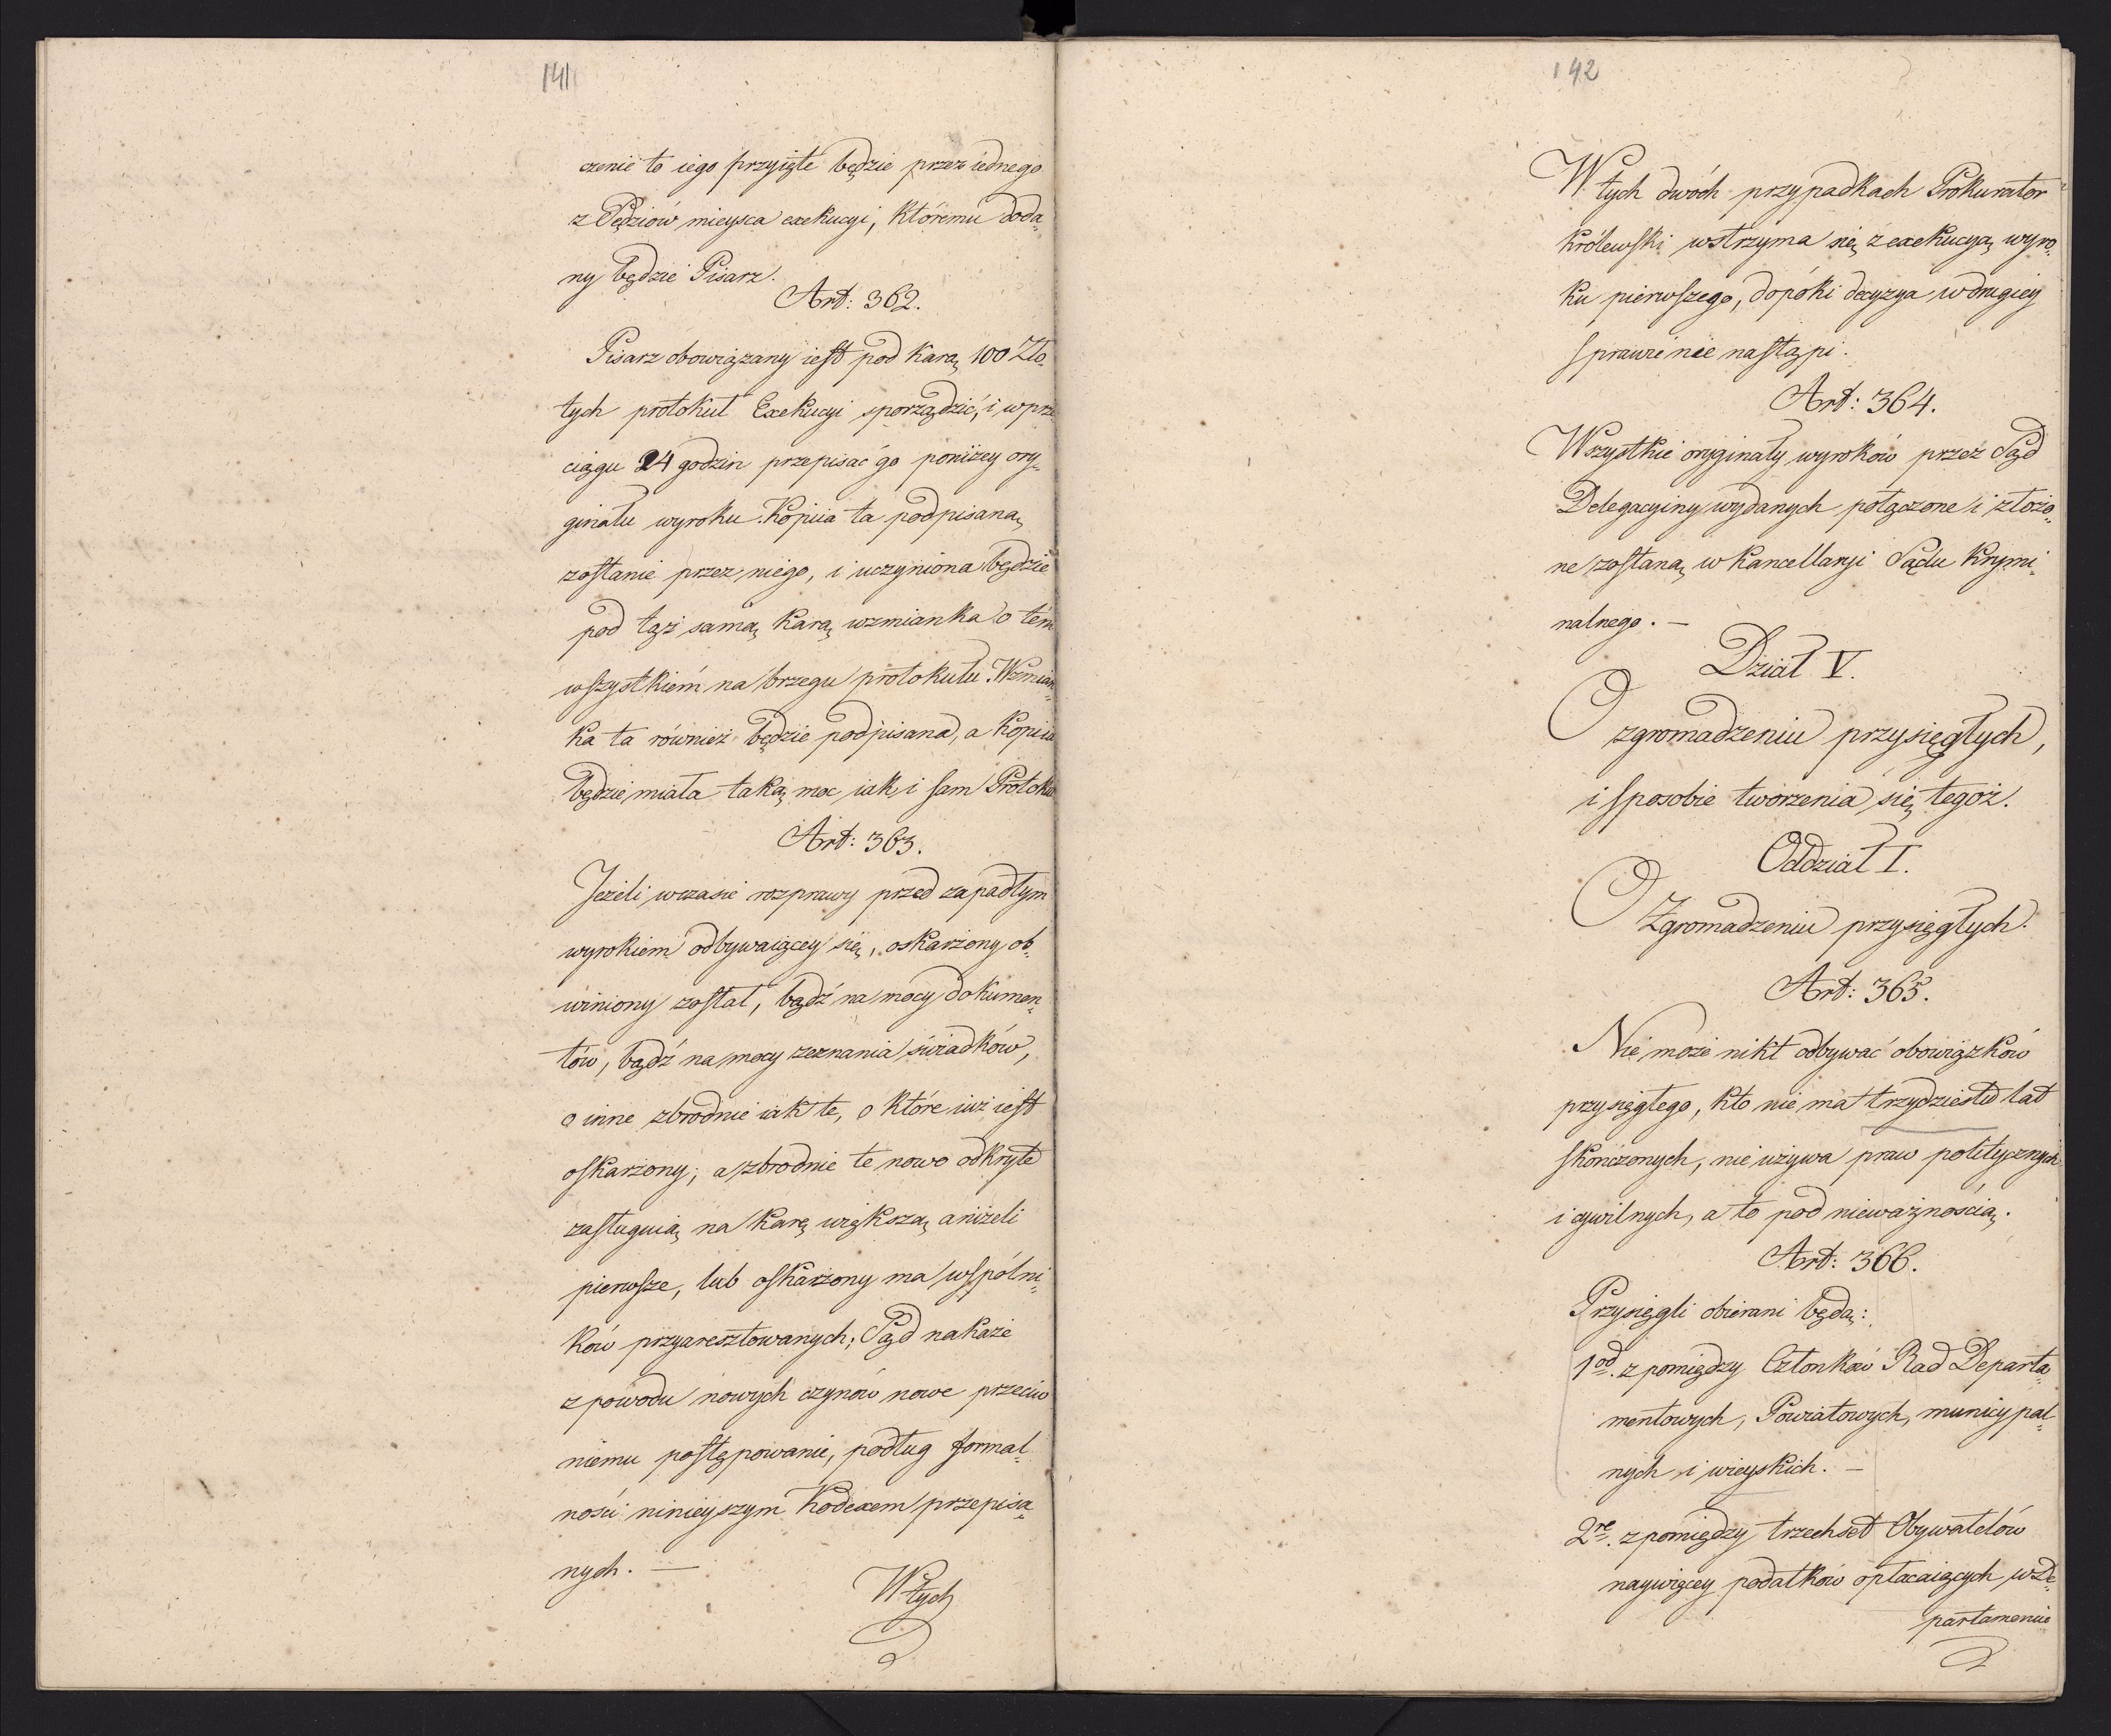 141
czenie to iego przyięte będzie przez iednego
z Sędziów mieysca exekucyi, któremu doda-
ny będzie Pisarz.
Art: 362.
Pisarz obowiązany iest pod karą 100 Zło-
tych protokuł Exekucyi sporządzić, i w prze-
ciągu 24 godzin przepisać go poniżey ory-
ginału wyroku. Kopiia ta podpisaną
zostanie przez niego, i uczyniona będzie
pod tąż samą karą wzmianka o tém
wszystkiém na brzegu protokułu. Wzmian-
ka ta również będzie podpisana, a kopiia
będzie miała taką moc iak i sam Protokuł
Art: 363.
Jeżeli w czasie rozprawy przed zapadłym
wyrokiem odbywaiącey się, oskarżony ob-
winiony został, bądź na mocy dokumen-
tów, bądź na mocy zeznania świadków,
o inne zbrodnie iak te, o które iuż iest
oskarżony; a zbrodnie te nowo odkryte
zasługuią na karę większą aniżeli
pierwsze, lub oskarżony ma wspólni-
ków przyaresztowanych; Sąd nakaże
z powodu nowych czynów nowe przeciw
niemu postępowanie, podług formal-
ności ninieyszym Kodexem przepisa-
nych. —
W tych
142
W tych dwóch przypadkach Prokurator
królewski wstrzyma się z exekucyą wyro-
ku pierwszego, dopóki decyzya w drugiey
sprawie nie nastąpi.
Art: 364.
Wszystkie oryginały wyroków przez Sąd
Delegacyiny wydanych połączone i złożo-
ne zostaną w kancellaryi Sądu Krymi-
nalnego. —
Dział V.
O zgromadzeniu przysięgłych,
i sposobie tworzenia się tegoż.
Oddział I.
O Zgromadzeniu przysięgłych.
Art: 365.
Nie może nikt odbywać obowiązków
przysięgłego, kto nie ma trzydziestu lat
skończonych, nie używa praw politycznych
i cywilnych, a to pod nieważnością.
Art: 366.
Przysięgli obierani będą:
1od. z pomiędzy Członków Rad Departa-
mentowych, Powiatowych, municypal-
nych i wieyskich. —
2re. z pomiędzy trzechset Obywatelów
naywięcey podatków opłacaiących w De-
partamencie